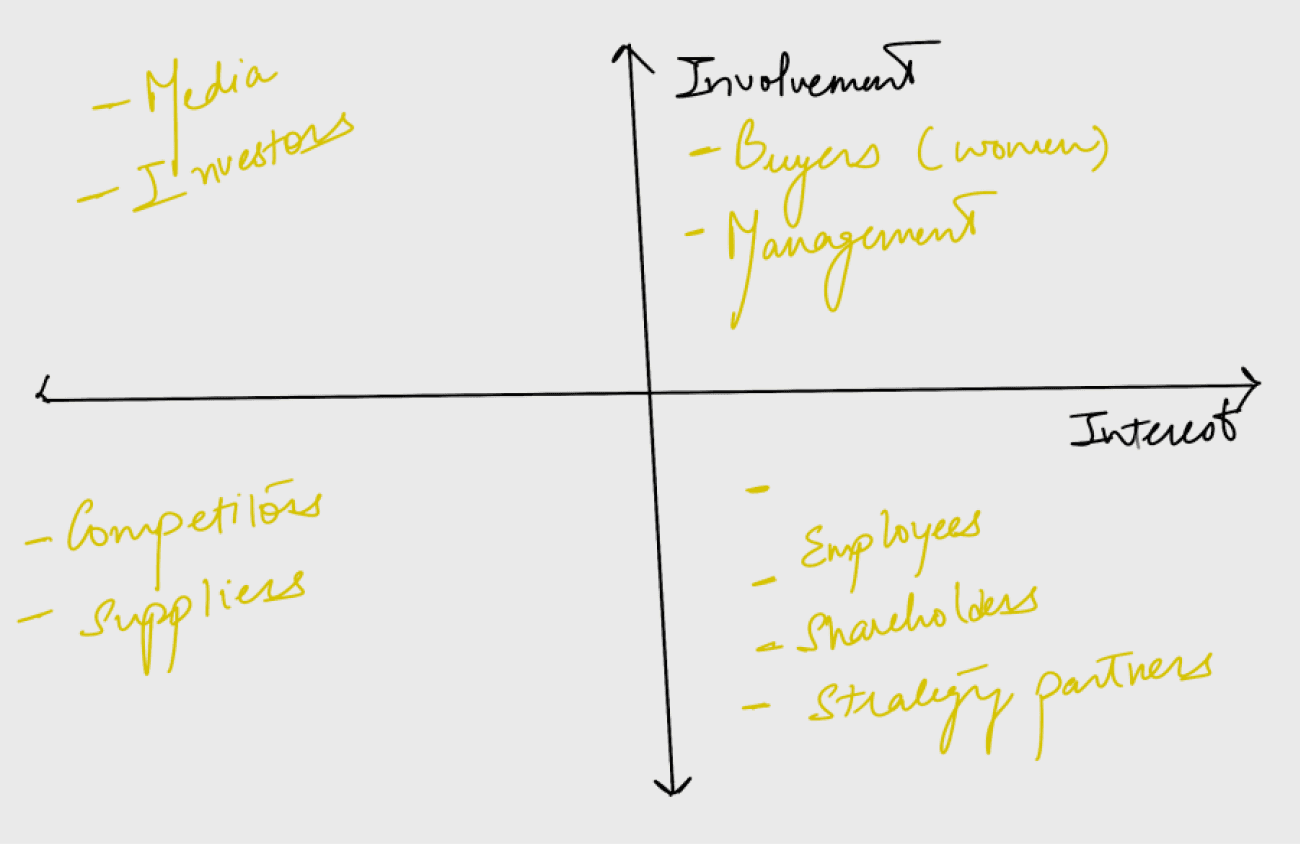 - Media
- Investors
Involvement
- Buyers (women)
- Management
Interest
- Competitors
- Suppliers
-
Employees
-
- Shareholders
- Strategy partners